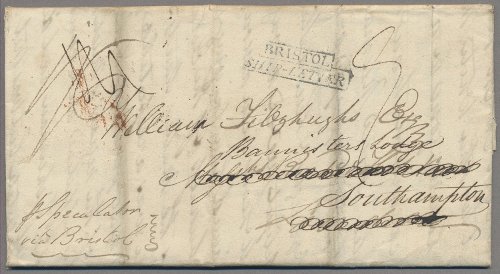 BRISTOL
SHIP-LETTER
William Fitzhughs Esq
Bannisters Lodge
Southampton
p Speculator
via Bristol